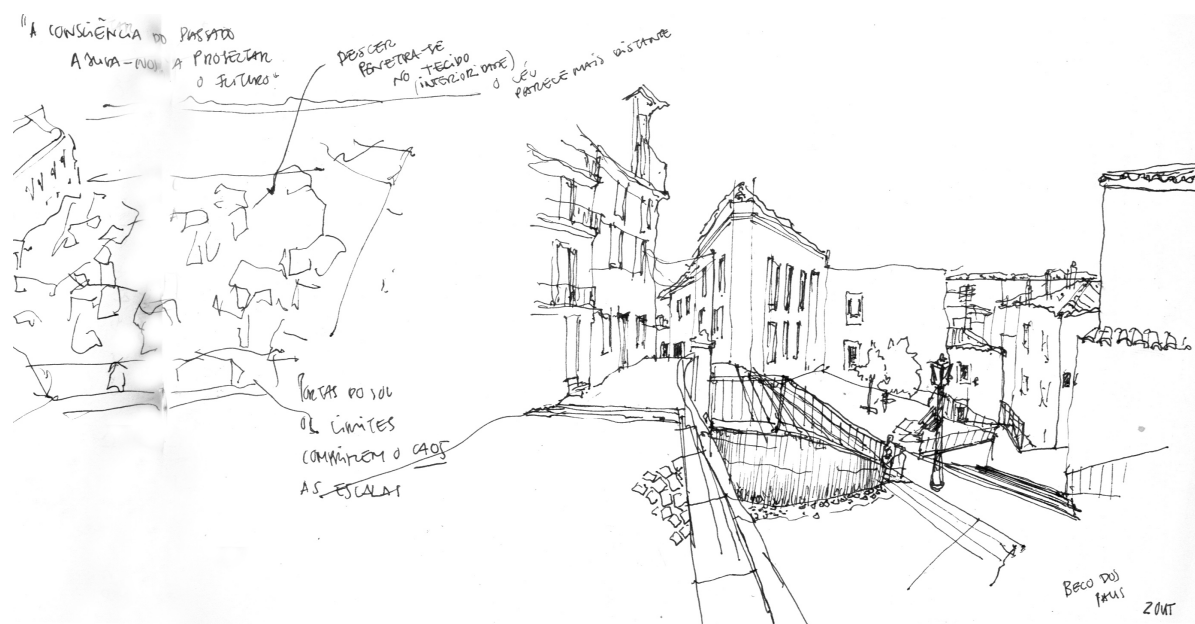 "A CONSCIÊNCIA DO PASSADO
AJUDA-NOS A PROJECTAR
O FUTURO"
DESCER
PENETRA-SE
NO TECIDO
(INTERIORIDADE)
O CÉU
PARECE MAIS DISTANTE
PORTAS DO SOL
OS LIMITES
COMPRIMEM O CAOS
AS ESCALAS
BECO DOS
2 OUT